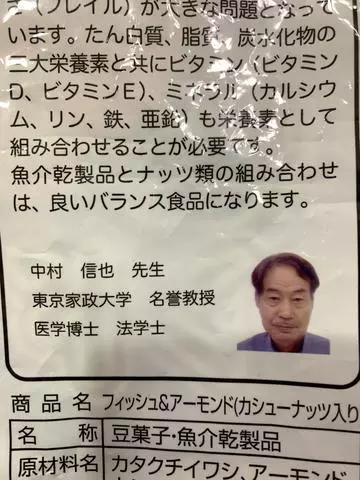 (フレイル)が大きな問題となって
います。たん白質、脂質、炭水化物の
三大栄養素と共にビタミン(ビタミン
D、ビタミンE)、ミネラル(カルシウ
ム、リン、鉄、亜鉛)も栄養素として
組み合わせることが必要です。
魚介乾製品とナッツ類の組み合わせ
は、良いバランス食品になります。
中村 信也 先生
東京家政大学 名誉教授
医学博士 法学士
商品名 フィッシュ&アーモンド(カシューナッツ入り
名称 豆菓子・魚介乾製品
原材料名 カタクチイワシ、アーモンド